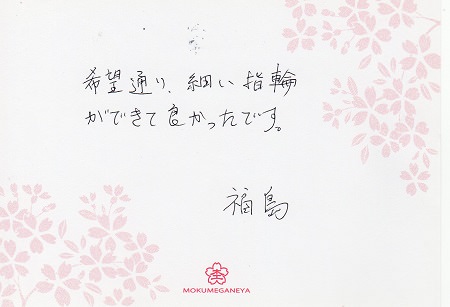 希望通り、細い指輪
ができて良かったです。
福島
MOKUMEGANEYA